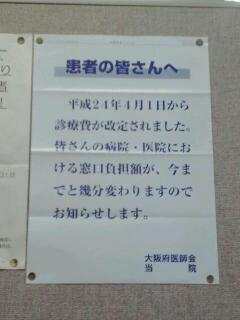 患者の皆さんへ
平成24年4月1日から
診療費が改定されました。
皆さんの病院・医院にお
ける窓口負担額が、今ま
でと幾分変わりますので
お知らせします。
大阪府医師会
当院